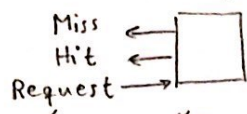 Miss
Hit
Request